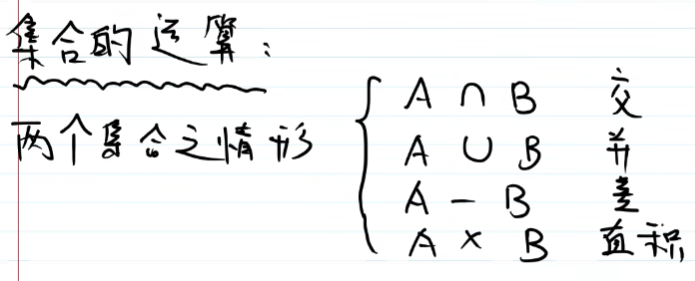 集合的运算:
两个集合之情形
A ∩ B 交
A ∪ B 并
A - B 差
A × B 直积